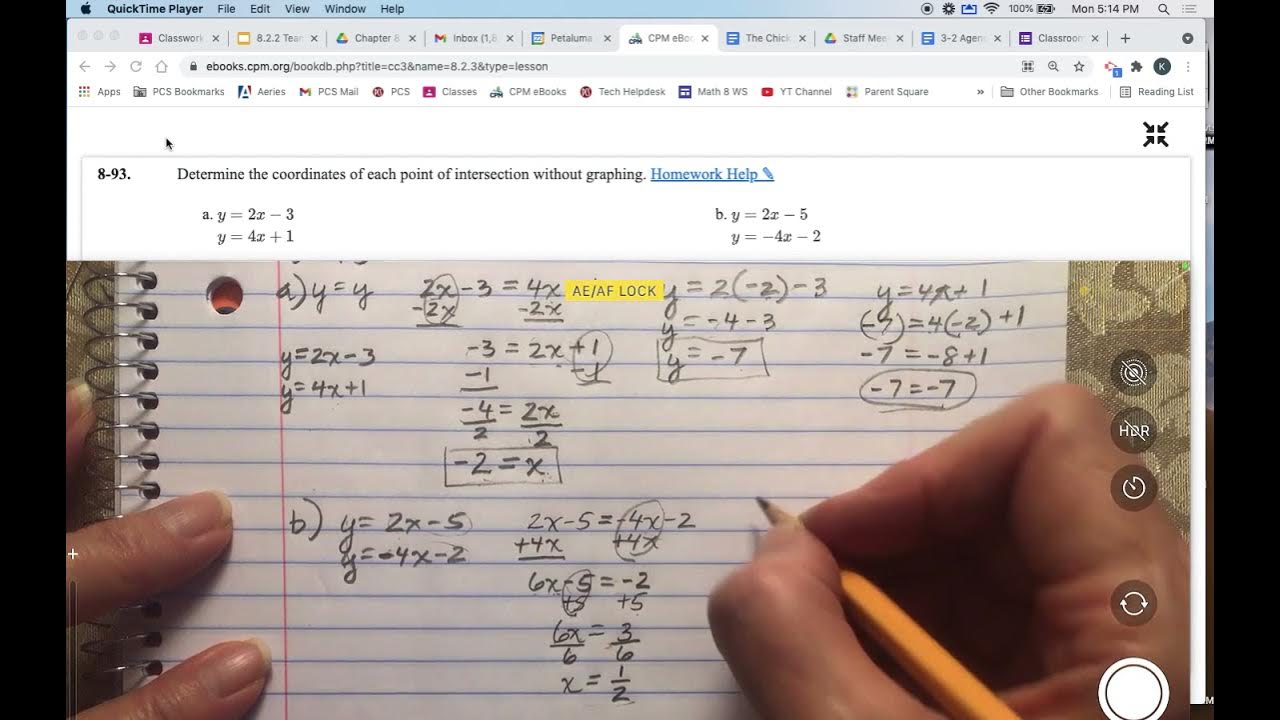 QuickTime Player File Edit View Window Help 100% Mon 5:14 PM
Classwork 8.2.2 Tean Chapter 8 Inbox (1,8 Petaluma CPM eBoo The Chick Staff Mee 3-2 Agen Classroom
ebooks.cpm.org/bookdb.php?title=cc3&name=8.2.3&type=lesson K
Apps PCS Bookmarks Aeries PCS Mail PCS Classes CPM eBooks Tech Helpdesk Math 8 WS YT Channel Parent Square » Other Bookmarks Reading List
8-93. Determine the coordinates of each point of intersection without graphing. Homework Help
a. y = 2x − 3
y = 4x + 1
b. y = 2x − 5
y = −4x − 2
AE/AF LOCK
HDR
a) y = y
y = 2x - 3
y = 4x + 1
2x - 3 = 4x
-2x -2x
-3 = 2x + 1
-1 -1
-4 = 2x
2 2
-2 = x
y = 2(-2) - 3
y = -4 - 3
y = -7
y = 4x + 1
(-7) = 4(-2) + 1
-7 = -8 + 1
-7 = -7
b) y = 2x - 5
y = -4x - 2
2x - 5 = -4x - 2
+4x +4x
6x - 5 = -2
+5 +5
6x = 3
6 6
x = 1/2